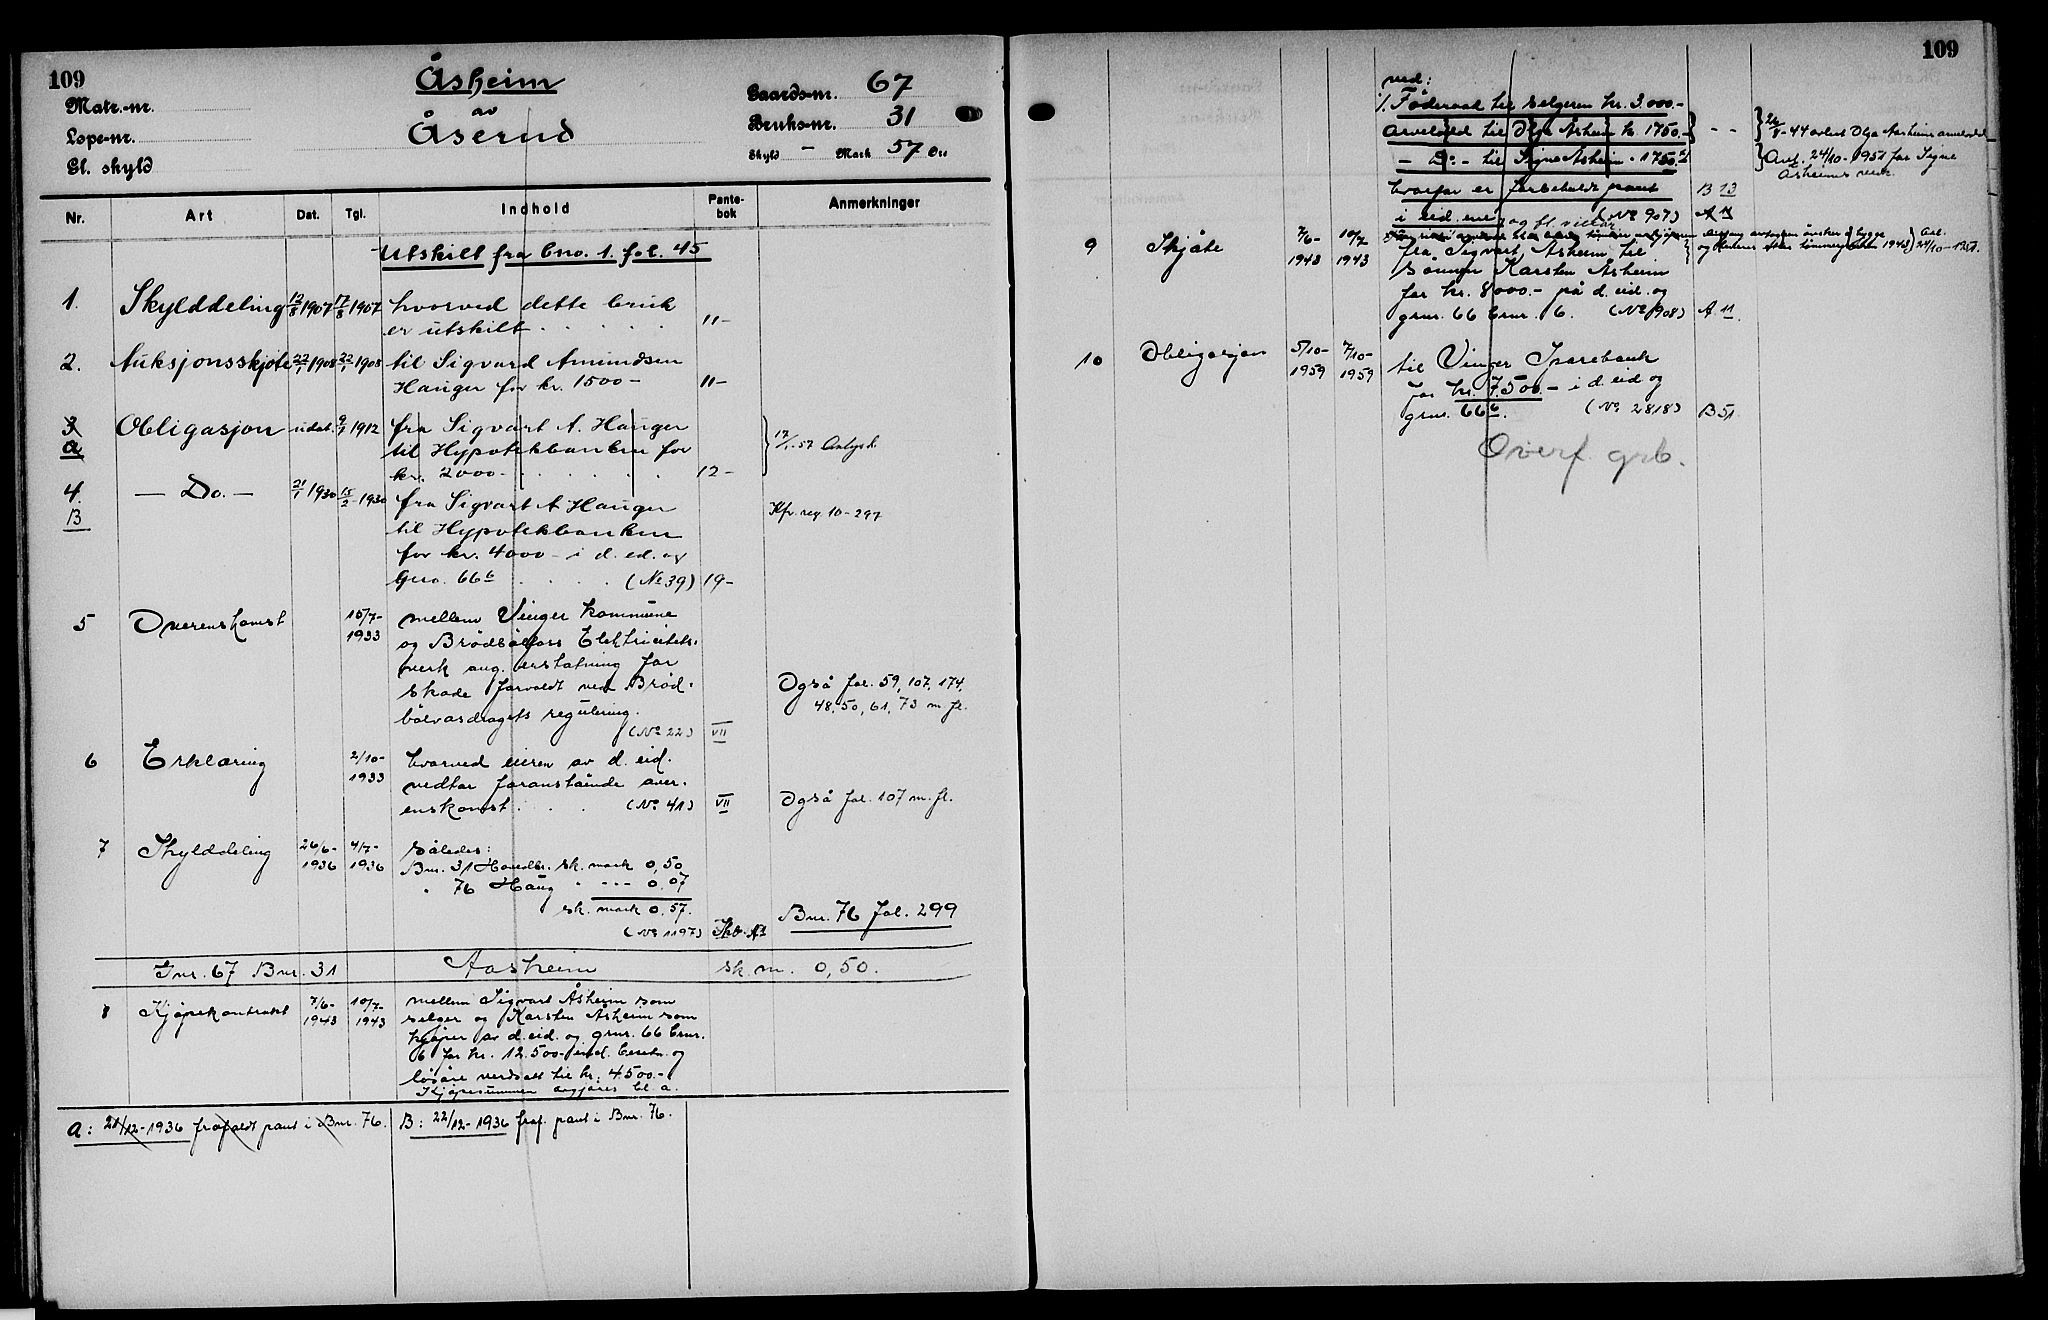 109
Åsheim
av
Åserud
Matr.-nr.
Løpe-nr.
Gl. skyld
Gaards-nr. 67
Bruks-nr. 31
Skyld — Mark 57 Øre
Nr. Art Dat. Tgl. Indhold Pante-bok Anmerkninger
Utskilt fra bno. 1. fol. 45
1. Skylddeling 12/8 1907 17/8 1907 hvorved dette bruk
er utskilt . . . . . 11-
2. Auksjonsskjøte 22/1 1908 22/1 1908 til Sigvard Amundsen
Hauger for kr. 1500- 11-
3 Obligasjon udat. 9/1 1912 fra Sigvart A. Hauger
a til Hypotekbanken for 17/1-57 Avlyst.
kr. 2000- . . . . 12-
4. — Do. — 21/1 1930 15/2 1930 fra Sigvart A Hauger
B til Hypotekbanken Kfr. reg. 10-297
for kr. 4000- i d. ed. og
Gno. 66 6 . . . . (No 39) 19-
5 Overenskomst 15/7-1933 mellem Vinger kommune
og Brødbølfoss Elektricitets-
verk ang. erstatning for
skade forvoldt ved Brød- Også fol. 59, 107, 174,
bølvasdragets regulering. 48, 50, 61, 73 m. fl.
(No 22) VII
6 Erklæring 2/10-1933 hvorved eieren av d. eid.
vedtar foranstående over-
enskomst . . . (No 41) VII Også fol. 107 m. fl.
7 Skylddeling 26/6-1936 4/7-1936 således:
Bnr. 31 Hovedbr. sk. mark 0,50
" 76 Haug " --- 0,07
sk. mark 0,57. Bnr. 76 fol. 299
(No 1197)
Gnr. 67 Bnr. 31 Aasheim sk. m. 0,50.
8 Kjøpekontrakt 7/6-1943 10/7-1943 mellem Sigvart Åsheim som
selger og Karsten Åsheim som
kjøper av d. eid. og gnr. 66 bnr.
6 for kr. 12.500- 
løsøre verdsatt til kr. 4500.-
Kjøpesummen avgjøres bl. a.
A: 21/12-1936 frafaldt pant i Bnr. 76.
B: 22/12-1936 fraf. pant i Bnr. 76.
109
ved:
1/. Føderaad til selgeren kr. 3.000.-
arvelodd til Olga Åsheim kr 1750.- - - 26/8-44 avlest Olga Aasheims arvelodd
— Do. - til Signe Åsheim - 1750.- Avl. 24/10-1951 for Signe
Åsheims vedk.
hvorfor er forbeholdt pant B 13
i eid. og fl. vilkår (No 907)
9 Skjøte 7/6-1943 10/7-1943 fra Sigvart Åsheim til
sønnen Karsten Åsheim
for kr. 8000.- på d. eid. og
gnr. 66 bnr. 6. (No 908) A 11.
Avl. 24/10-1951.
10 Obligasjon 5/10-1959 7/10-1959 til Vinger Sparebank
for kr. 7.500.- i d. eid og
gnr. 66 6. (No 2818) B 51
Overf. grb.